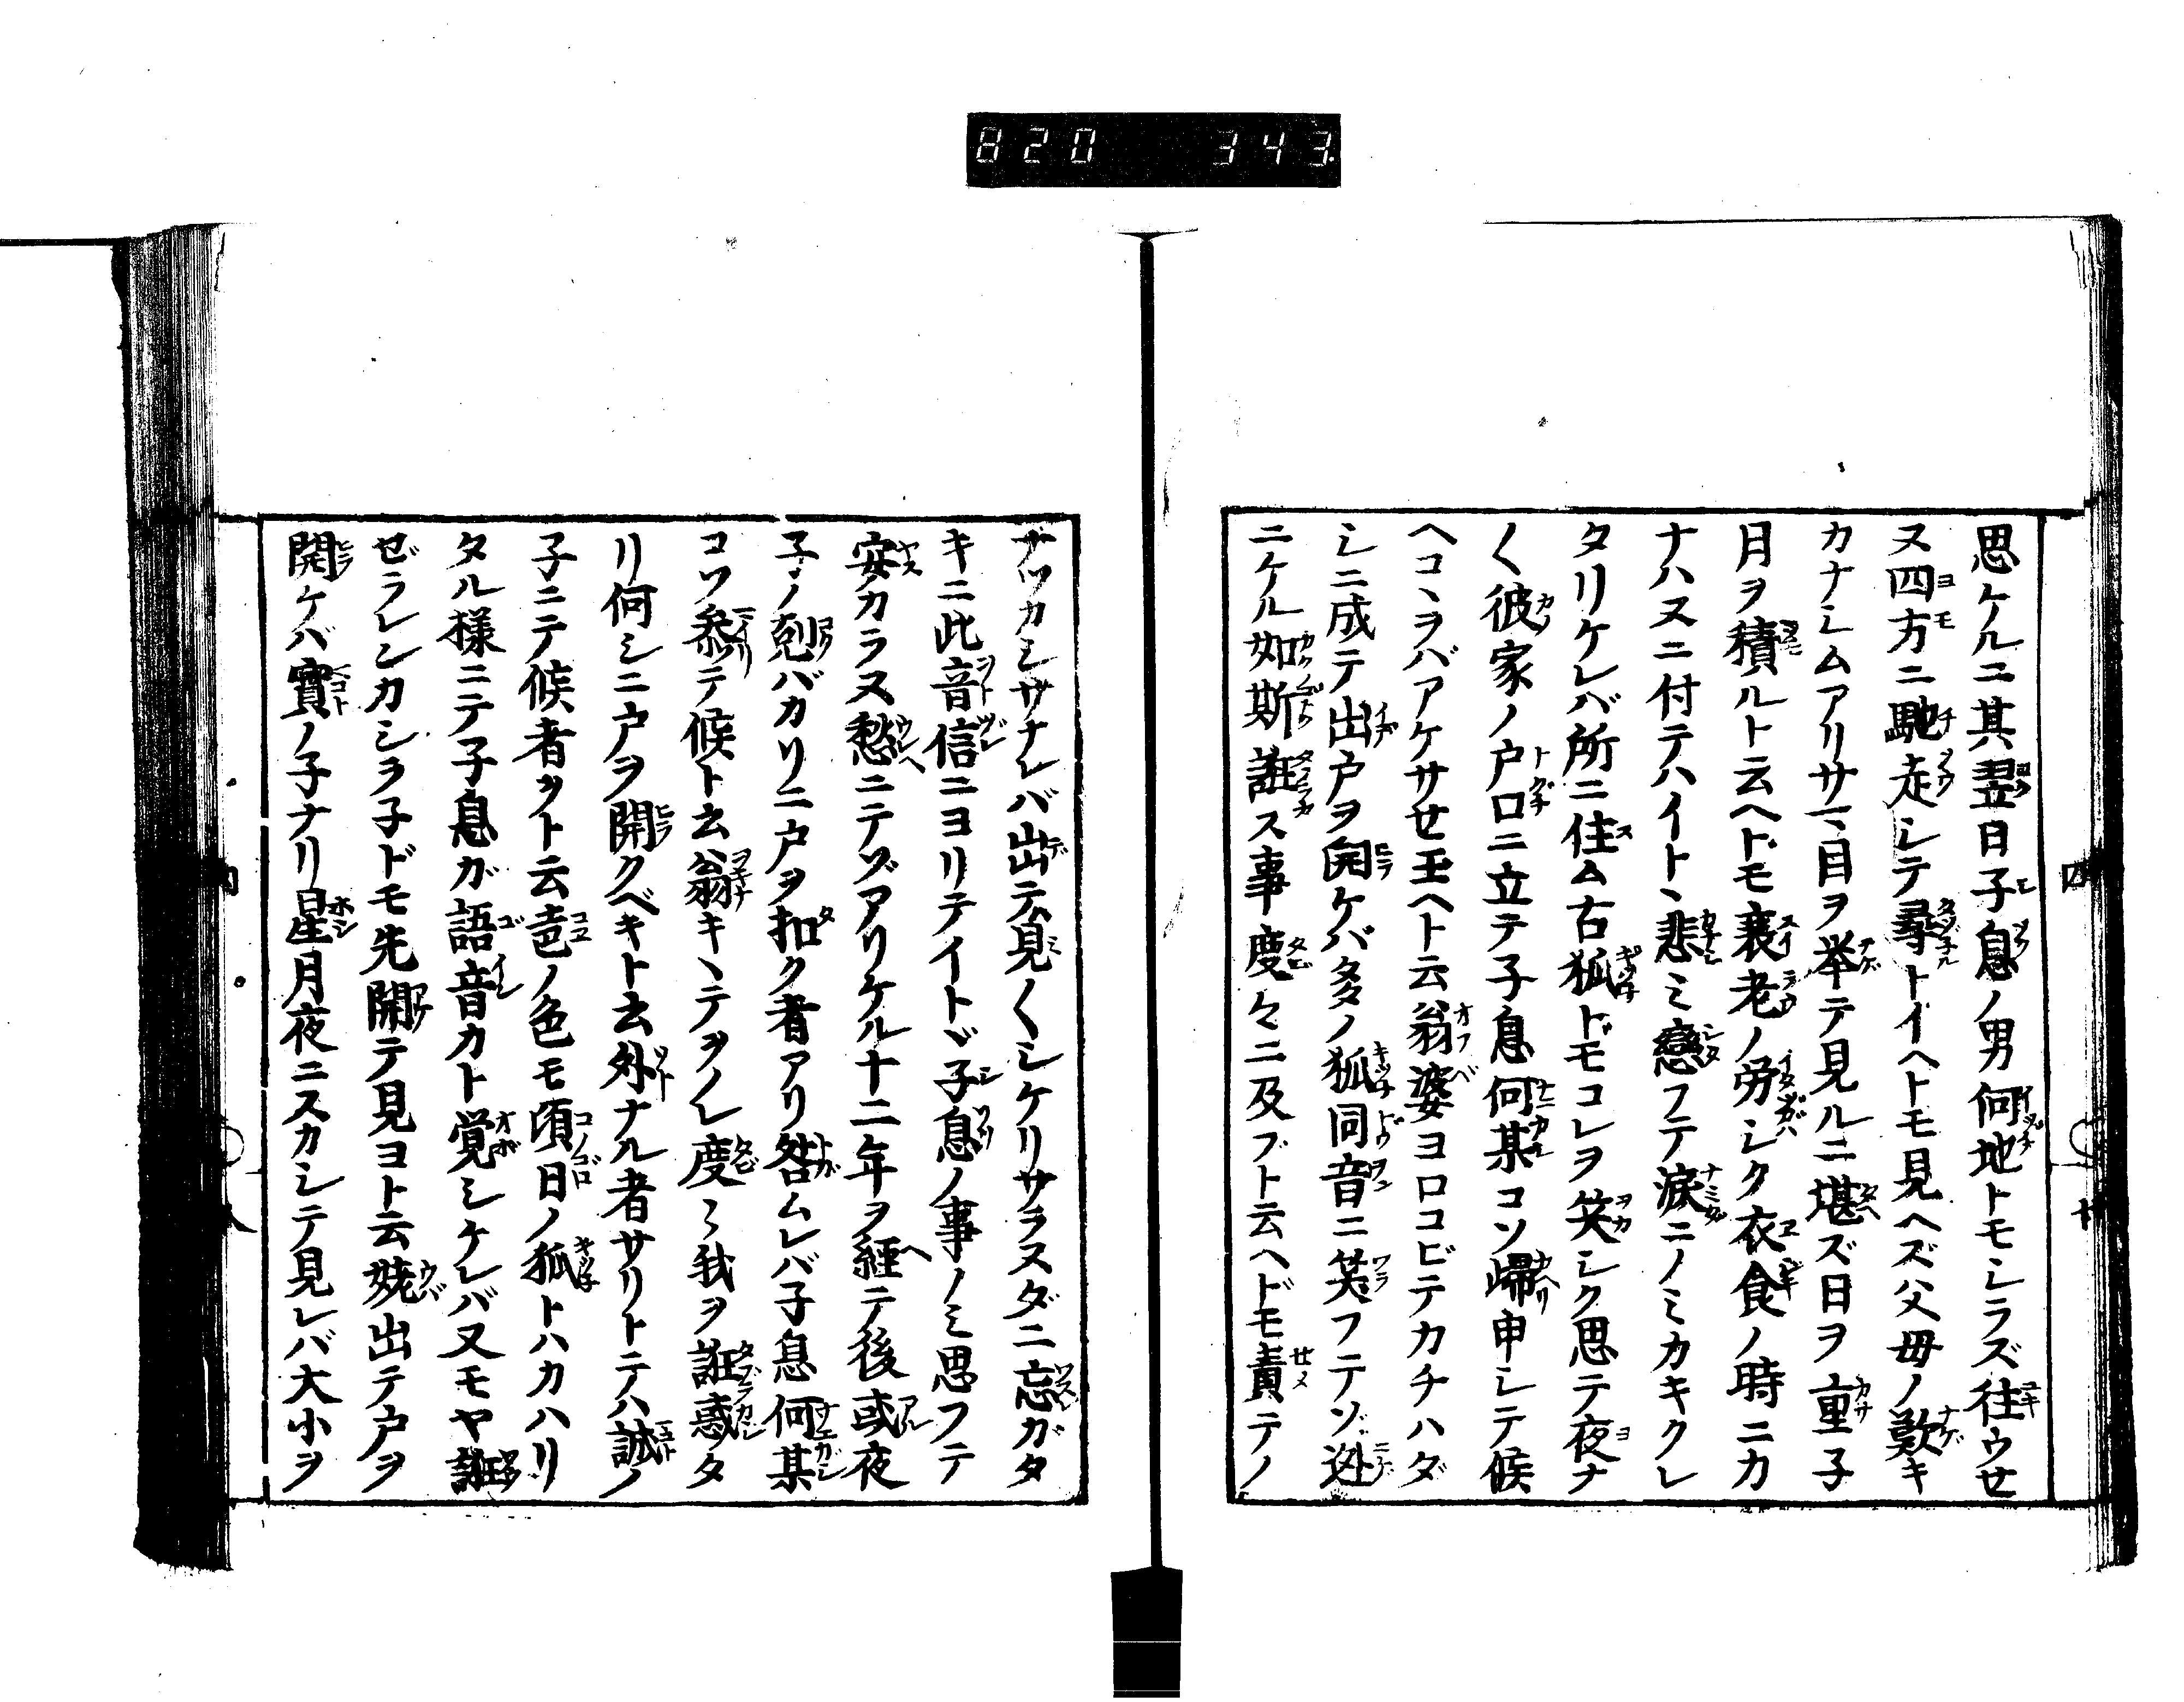 820 343
思ケルニ其翌日子息ノ男何地トモシラズ往ウせ
ヌ四方ニ馳走シテ尋トイヘトモ見ヘズ父母ノ歎キ
カナシムアリサマ目ヲ举テ見ルニ堪ズ日ヲ重子
月ヲ積ルト云ヘドモ衰老ノ旁シク衣食ノ時ニカ
ナハヌニ付テハイトヽ悲ミ戀フテ淚ニノミカキクレ
タリケレバ所ニ住ム古狐ドモコレヲ笑シク思テ夜ナ
〱彼家ノ戸口ニ立テ子息何某コソ帰申シテ候
ヘコヽヲバアケサせ玉ヘト云翁婆ヨロコビテカチハダ
シニ成テ出戸ヲ開ケバ多ノ狐同音ニ笑フテソ迯
ニケル如斯誑ス事度々ニ及ブト云ヘドモ責テノ
ナツカシサナレバ出テ見〱シケリサラヌダニ忘ガタ
キニ此音信ニヨリテイトヾ子息ノ事ノミ思フテ
安カラヌ愁ニテゾアリケル十二年ヲ經テ後或夜
子ノ剋バカリニ戸ヲ扣ク者アリ咎ムレバ子息何某
コソ参テ候ト云翁キヽテヲノレ度〻我ヲ誑惑タ
リ何シニ戸ヲ開クベキト云外ナル者サリトテハ誠ノ
子ニテ候者ヲト云音ノ色モ頃日ノ狐トハカハリ
タル様ニテ子息ガ語音カト覚シケレバ又モヤ誑
ゼラレンカシラ子ドモ先開テ見ヨト云姥出テ戸ヲ
開ケバ實ノ子ナリ星月夜ニスカシテ見レバ大小ヲ